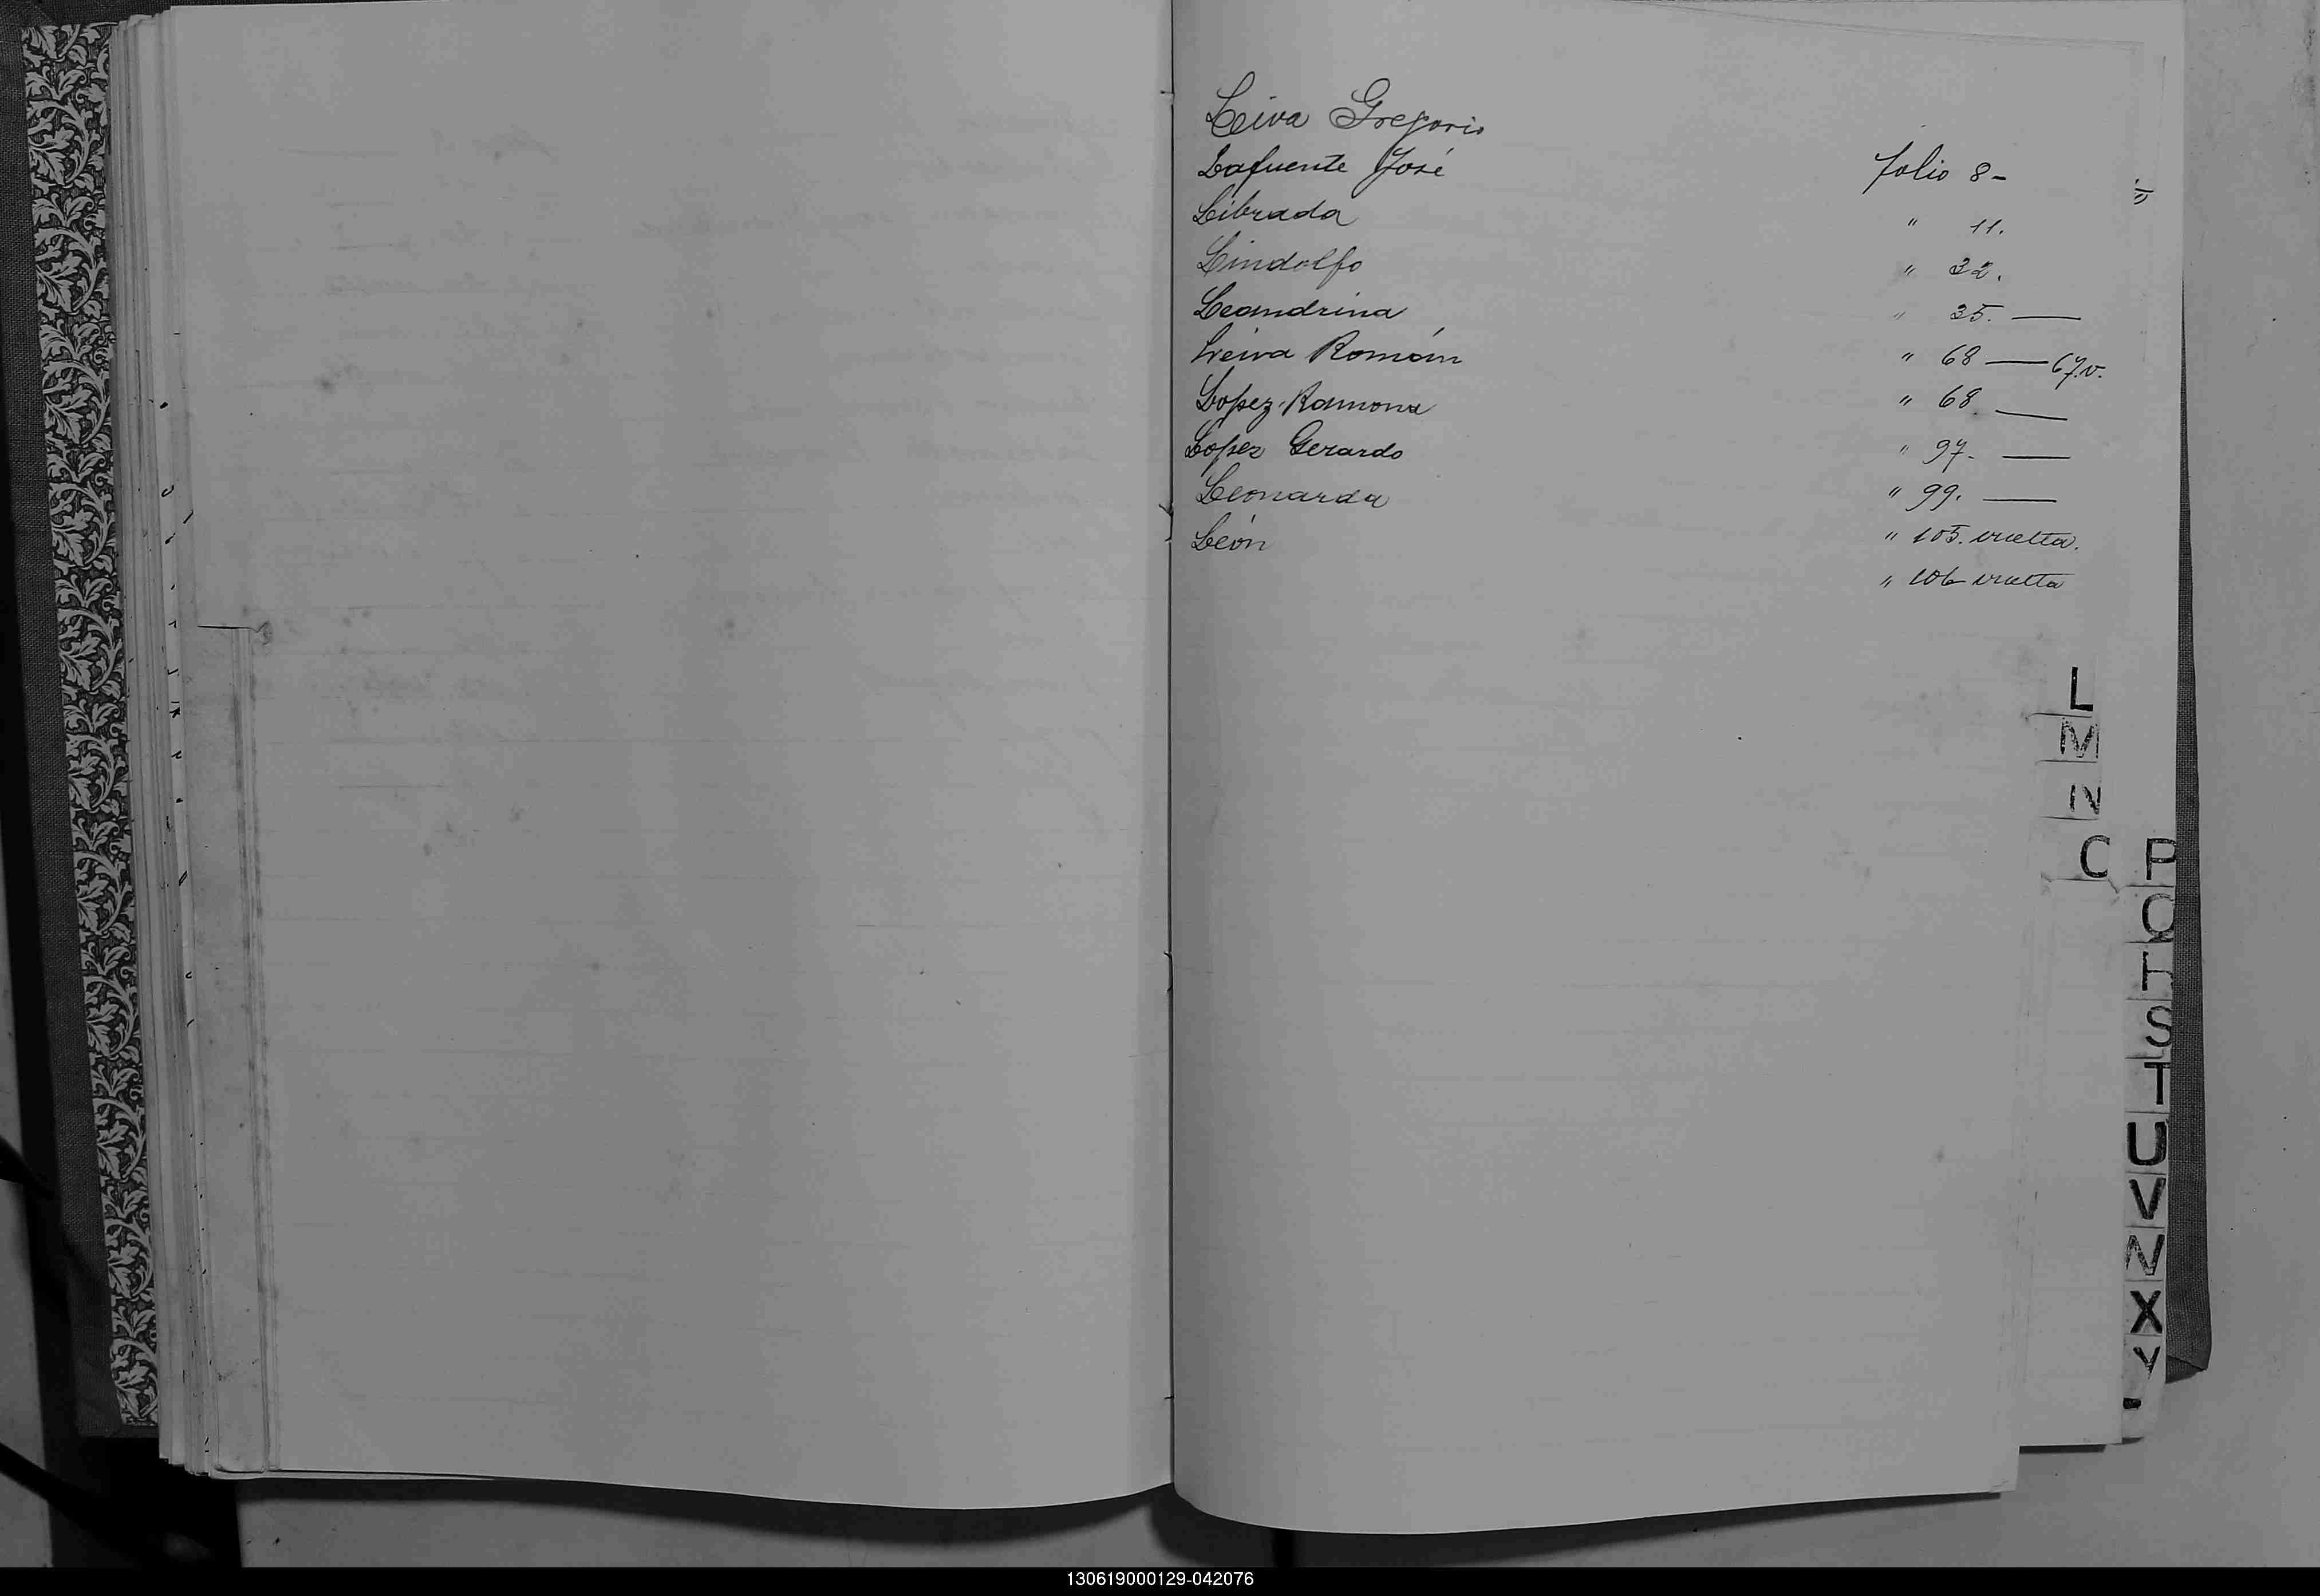 Leiva Gregorio folio 8-
Lafuente José " 11.
Librada " 32.
Lindolfo " 35. —
Leandrina " 68 — 67.v.
Leiva Román " 68 —
Lopez Ramona " 97. —
Lopez Gerardo " 99. —
Leonarda " 105. vuelta.
León " 106 vuelta
L
M
N
O P
Q
S
T
U
V
X
Y
130619000129-042076